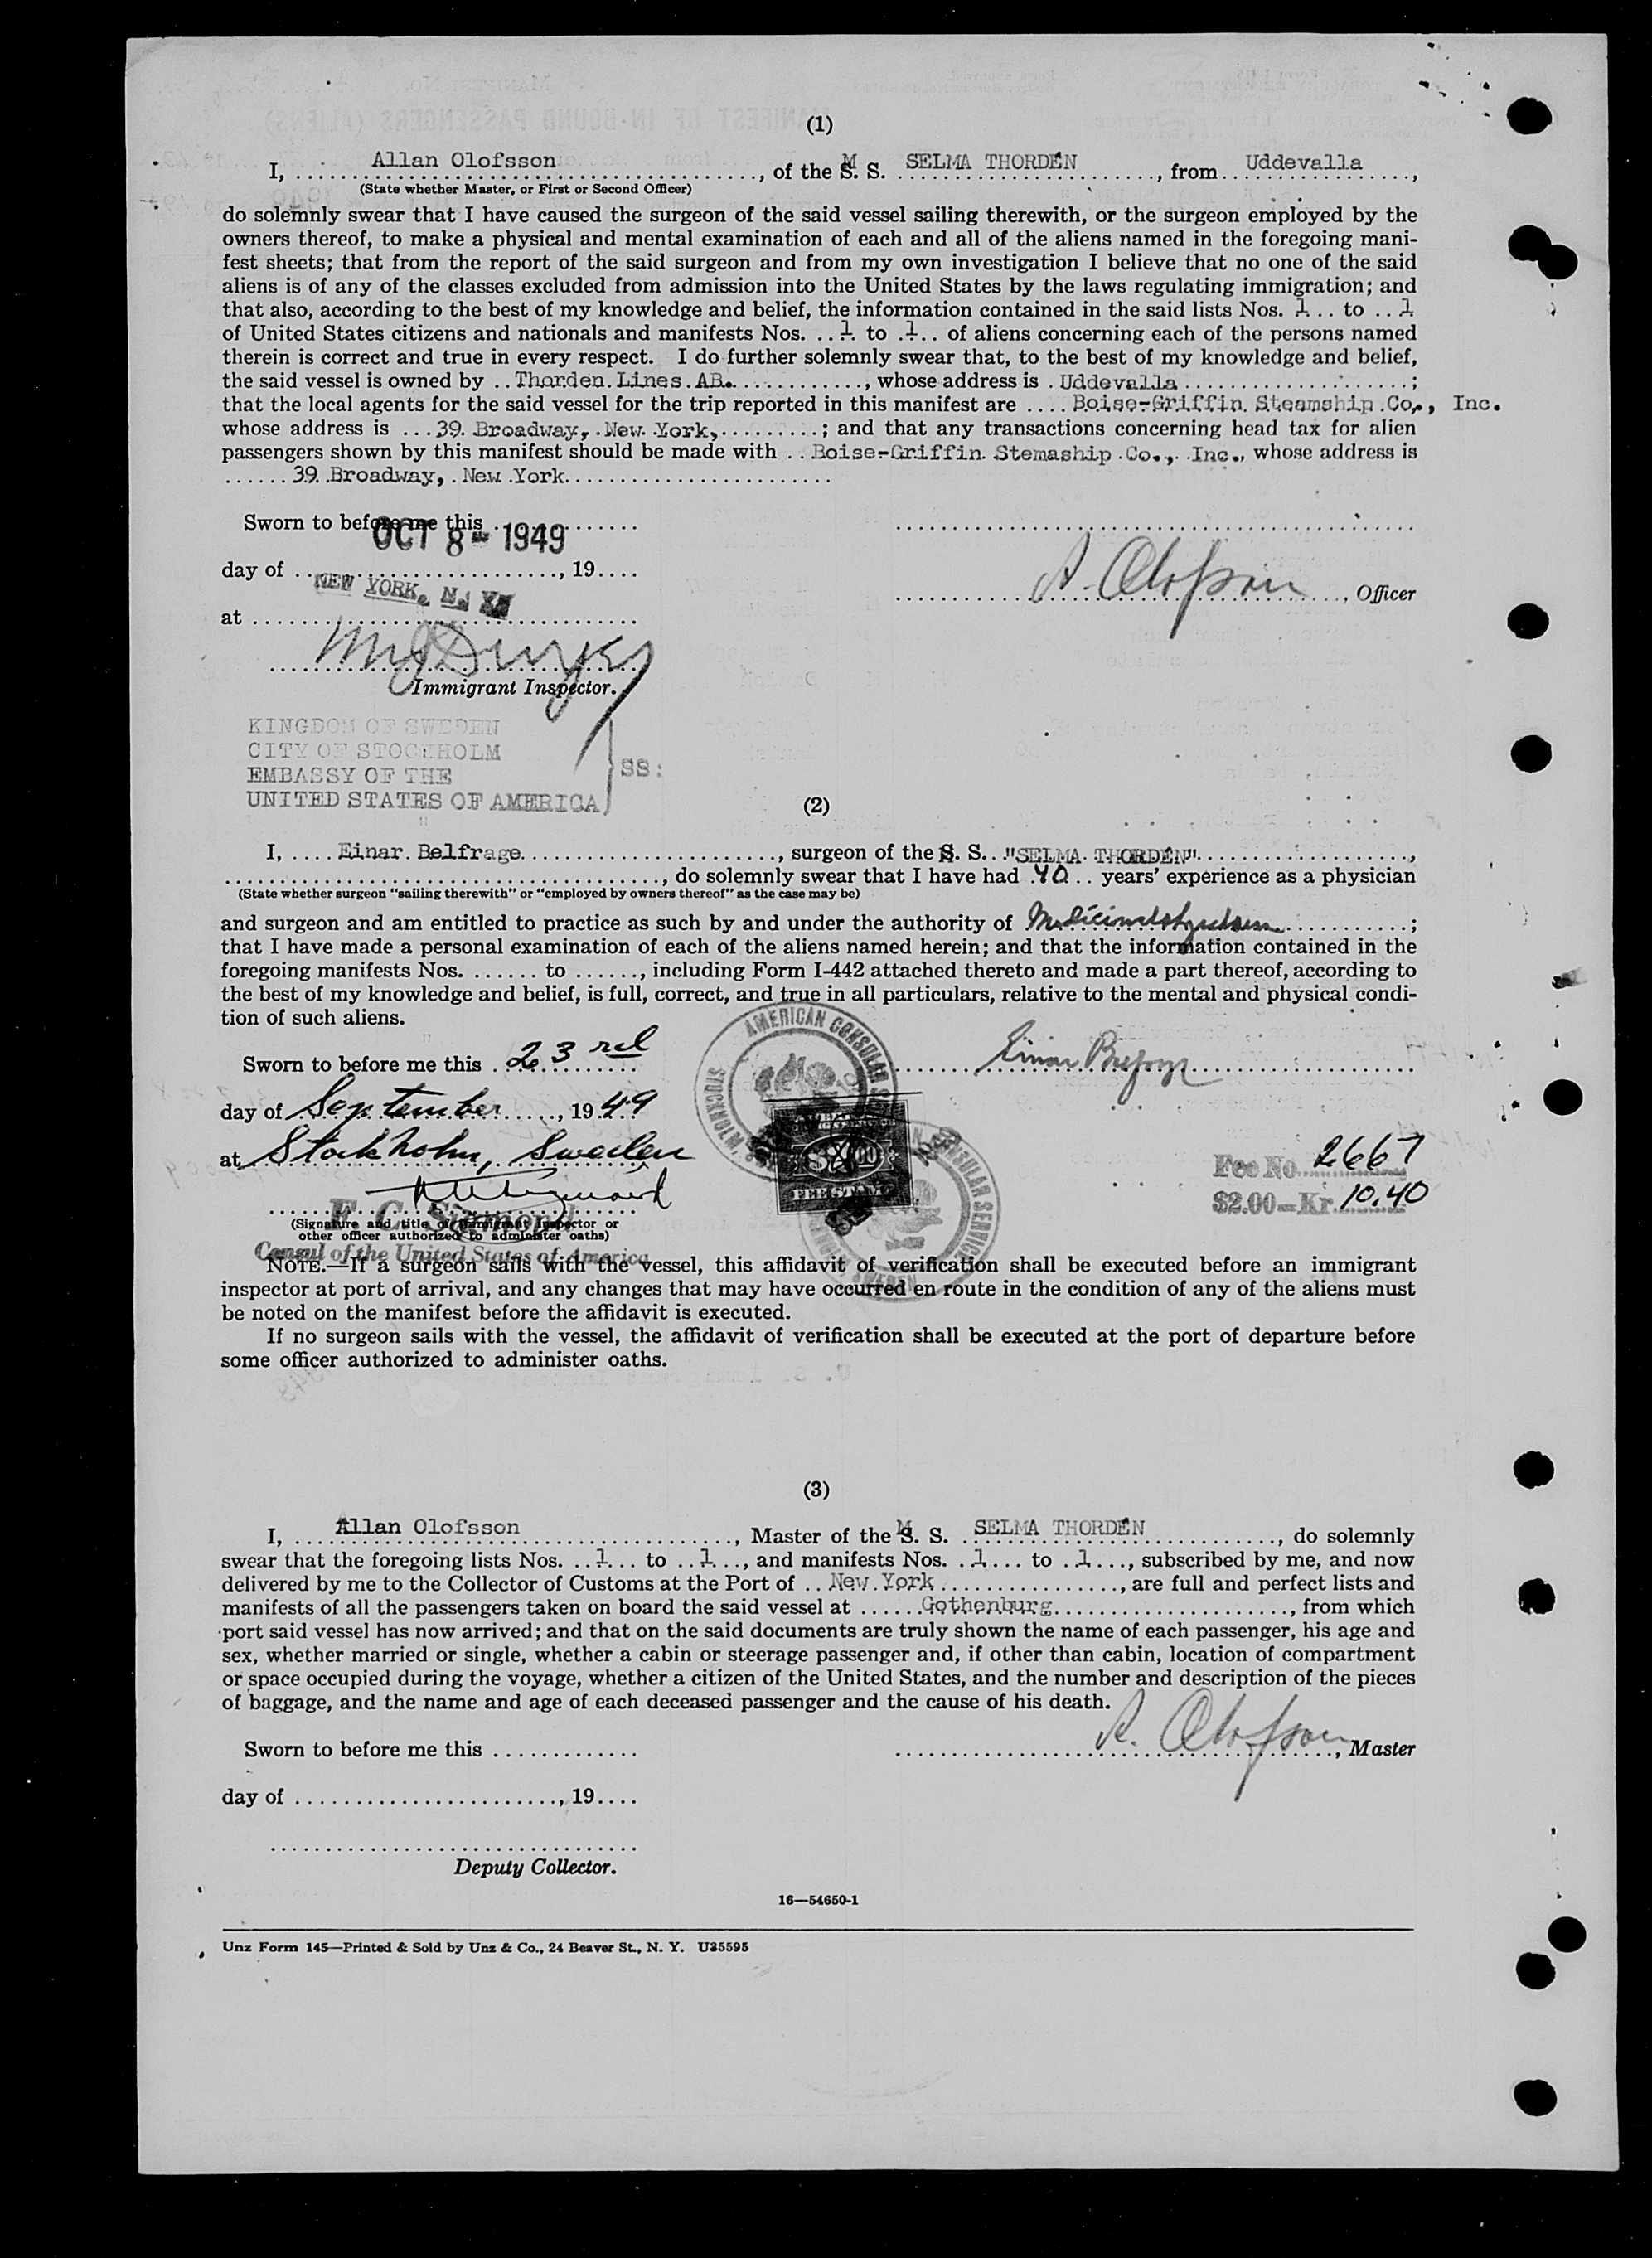 (1)
I, Allan Olofsson, of the M. S. SELMA THORDÉN, from Uddevalla,
(State whether Master, or First or Second Officer)
do solemnly swear that I have caused the surgeon of the said vessel sailing therewith, or the surgeon employed by the
owners thereof, to make a physical and mental examination of each and all of the aliens named in the foregoing mani-
fest sheets; that from the report of the said surgeon and from my own investigation I believe that no one of the said
aliens is of any of the classes excluded from admission into the United States by the laws regulating immigration; and
that also, according to the best of my knowledge and belief, the information contained in the said lists Nos. 1 to 1
of United States citizens and nationals and manifests Nos. 1 to 1 of aliens concerning each of the persons named
therein is correct and true in every respect. I do further solemnly swear that, to the best of my knowledge and belief,
the said vessel is owned by Thorden Lines AB., whose address is Uddevalla;
that the local agents for the said vessel for the trip reported in this manifest are Boise-Griffin Steamship Co., Inc.
whose address is 39 Broadway, New York,; and that any transactions concerning head tax for alien
passengers shown by this manifest should be made with Boise-Griffin Stemaship Co., Inc., whose address is
39 Broadway, New York
Sworn to before me this
OCT 8 - 1949
day of , 19
NEW YORK, N. Y.
A. Olofsson, Officer
at
Immigrant Inspector.
KINGDOM OF SWEDEN
CITY OF STOCKHOLM
EMBASSY OF THE
UNITED STATES OF AMERICA
SS:
(2)
I, Einar Belfrage, surgeon of the S. S. "SELMA THORDÉN",
, do solemnly swear that I have had 40 years' experience as a physician
(State whether surgeon "sailing therewith" or "employed by owners thereof" as the case may be)
and surgeon and am entitled to practice as such by and under the authority of Medicinalstyrelsen;
that I have made a personal examination of each of the aliens named herein; and that the information contained in the
foregoing manifests Nos. to , including Form I-442 attached thereto and made a part thereof, according to
the best of my knowledge and belief, is full, correct, and true in all particulars, relative to the mental and physical condi-
tion of such aliens.
AMERICAN CONSULAR SERVICE
STOCKHOLM,
Sworn to before me this 23rd
Einar Belfrage
day of September, 1949
at Stockholm, Sweden
$2.00
FEE STAMP
CONSULAR SERVICE
SWEDEN
Fee No. 2667
$2.00=Kr. 10.40
(Signature and title of Immigrant Inspector or
other officer authorized to administer oaths)
Consul of the United States of America
NOTE.—If a surgeon sails with the vessel, this affidavit of verification shall be executed before an immigrant
inspector at port of arrival, and any changes that may have occurred en route in the condition of any of the aliens must
be noted on the manifest before the affidavit is executed.
If no surgeon sails with the vessel, the affidavit of verification shall be executed at the port of departure before
some officer authorized to administer oaths.
(3)
I, Allan Olofsson, Master of the M. S. SELMA THORDÉN, do solemnly
swear that the foregoing lists Nos. 1 to 1, and manifests Nos. 1 to 1, subscribed by me, and now
delivered by me to the Collector of Customs at the Port of New York, are full and perfect lists and
manifests of all the passengers taken on board the said vessel at Gothenburg, from which
port said vessel has now arrived; and that on the said documents are truly shown the name of each passenger, his age and
sex, whether married or single, whether a cabin or steerage passenger and, if other than cabin, location of compartment
or space occupied during the voyage, whether a citizen of the United States, and the number and description of the pieces
of baggage, and the name and age of each deceased passenger and the cause of his death.
Sworn to before me this
A. Olofsson, Master
day of , 19
Deputy Collector.
16—54650-1
Unz Form 145—Printed & Sold by Unz & Co., 24 Beaver St., N. Y. U35595